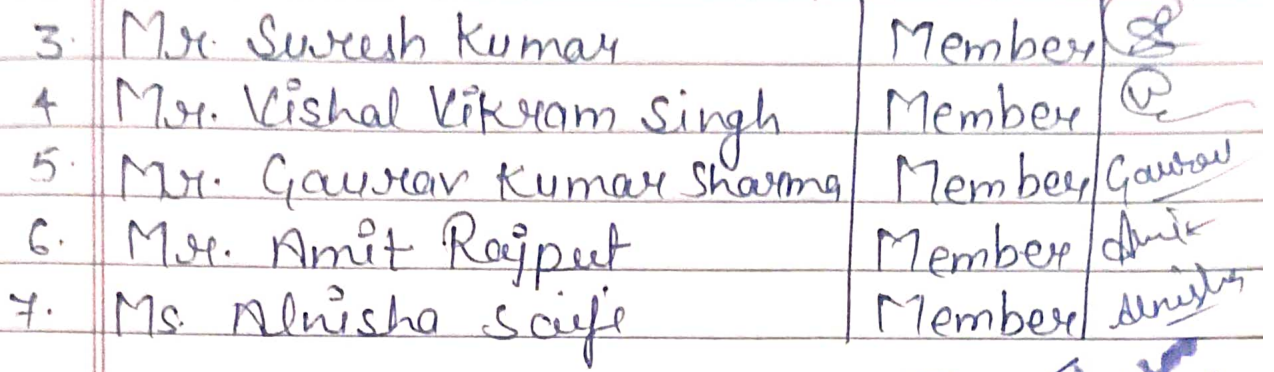 3. Mr. Suresh Kumar Member
4 Mr. Vishal Vikram Singh Member
5. Mr. Gaurav Kumar Sharma Member Gaurav
6. Mr. Amit Rajput Member Amit
7. Ms. Alnisha Saifi Member Alnisha